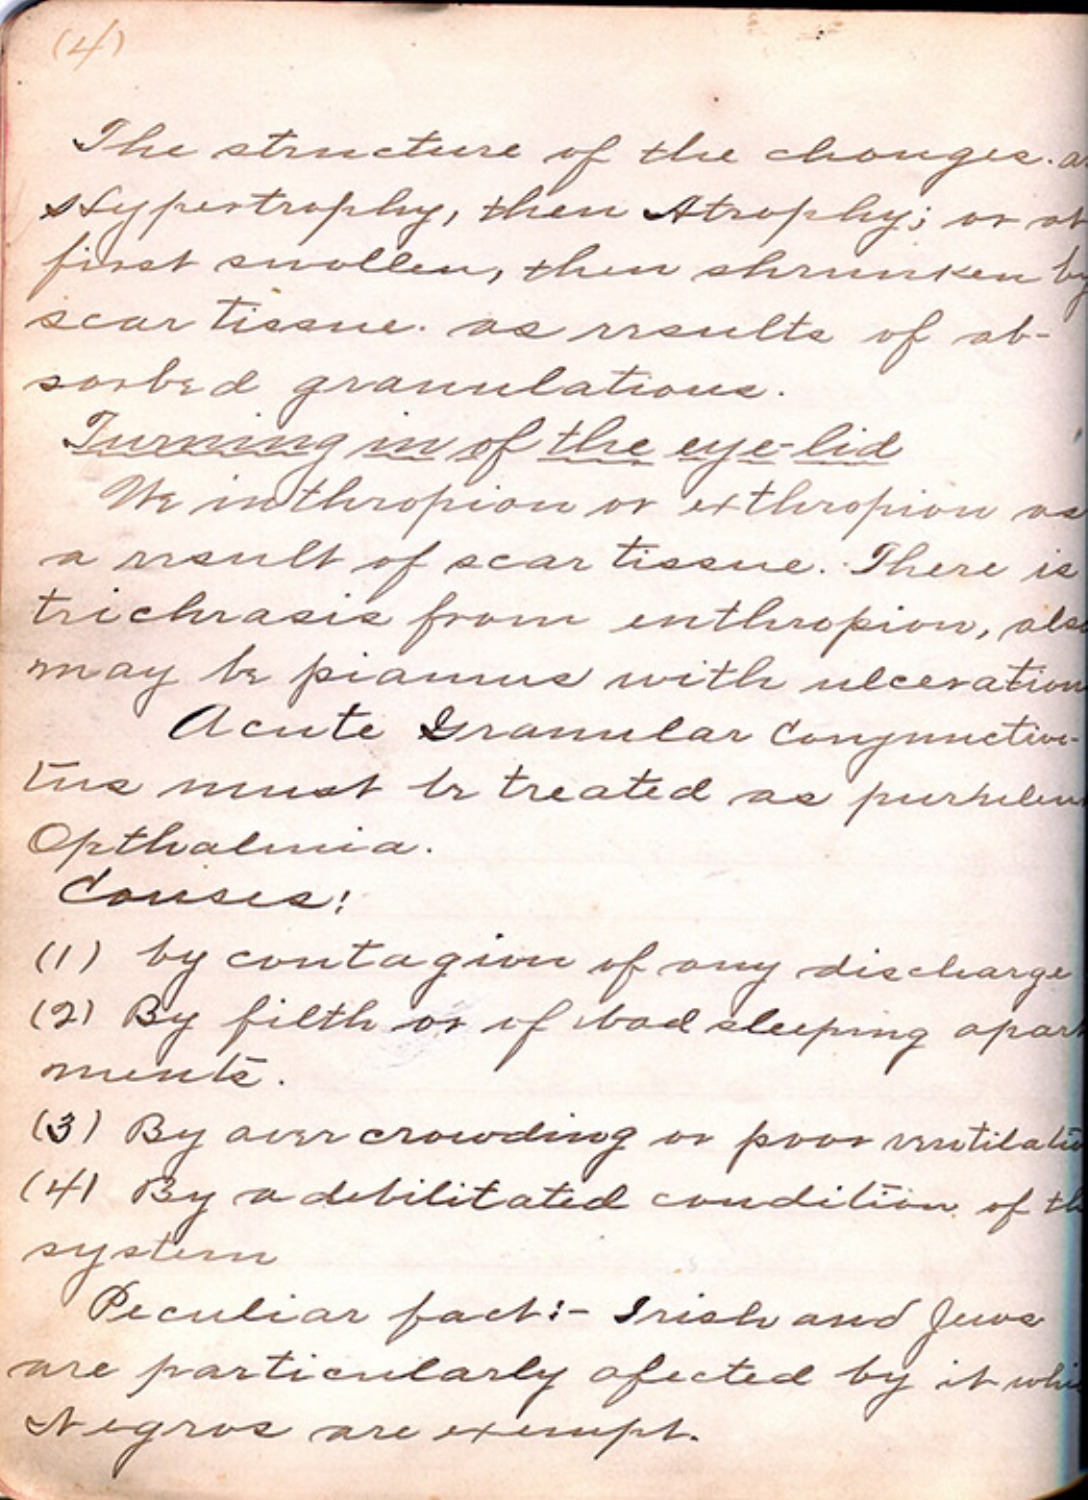 (4)
The structure of the changes. a
Hypertrophy, then Atrophy; or at
first swollen, then shrunken by
scar tissue. as results of ab-
sorbed granulations.
Turning in of the eye-lid
We inthropion or exthropion as
a result of scar tissue. There is
trichrasis from enthropion, also
may be piannus with ulceration
Acute Granular Conjunctivi-
tus must be treated as purhelen
Opthalmia.
Causes:
(1) by contagion of any discharge
(2) By filth or of bad sleeping apart
ments.
(3) By over crowding or poor ventilatio
(4) By a debilitated condition of th
system
Peculiar fact:- Irish and Jews
are particularly afected by it whi
Negros are exempt.